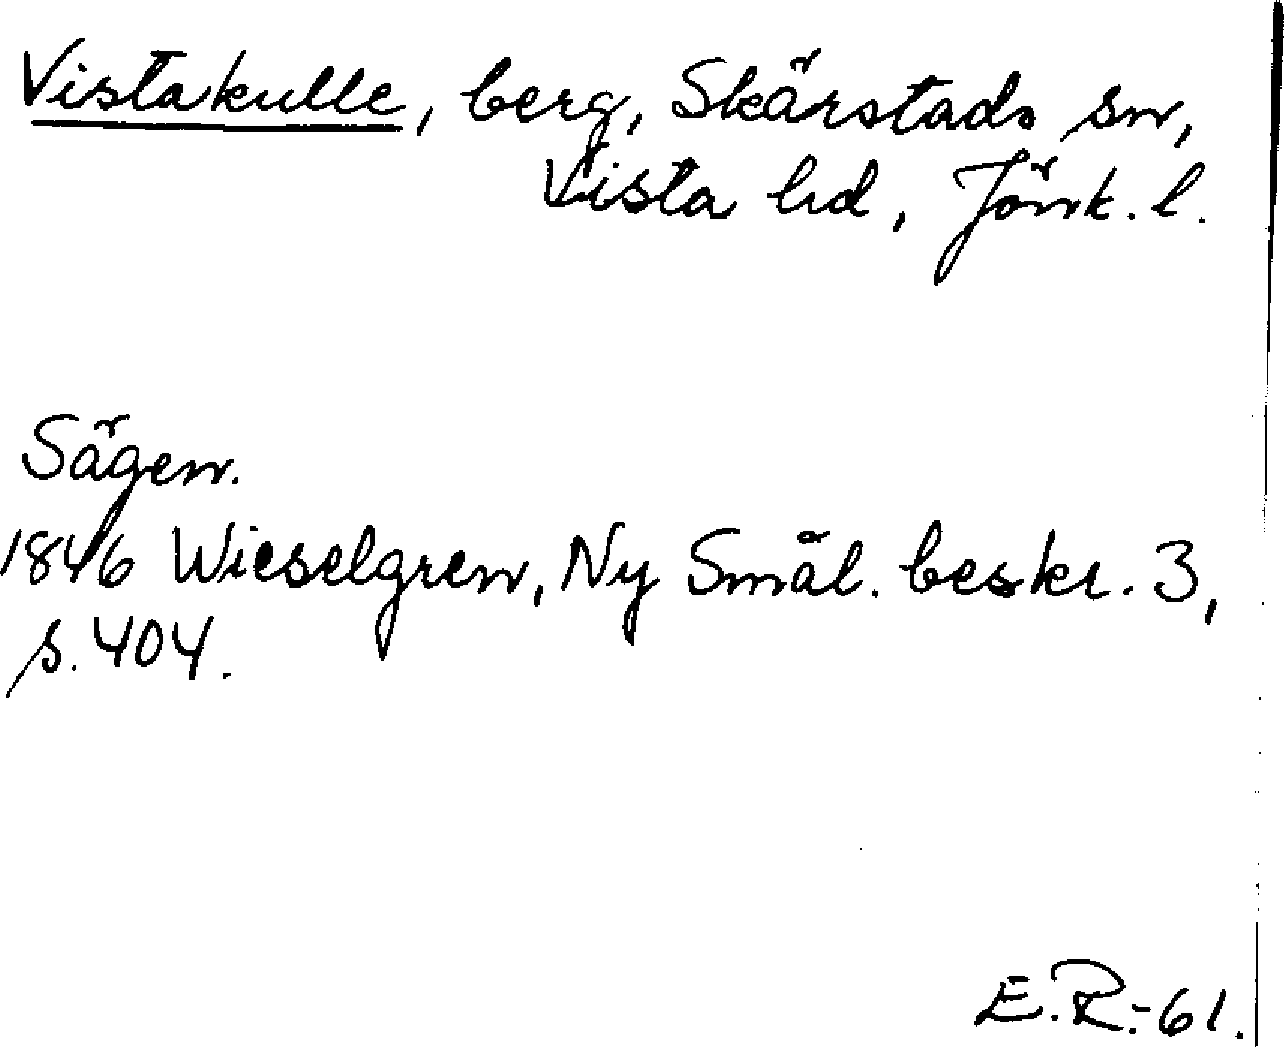 Vistakulle, berg, Skärstads sn,
Vista hd, Jönk. l.
Sägen.
1846 Wieselgren, Ny Smål. beskr. 3,
s. 404.
E.R.-61.